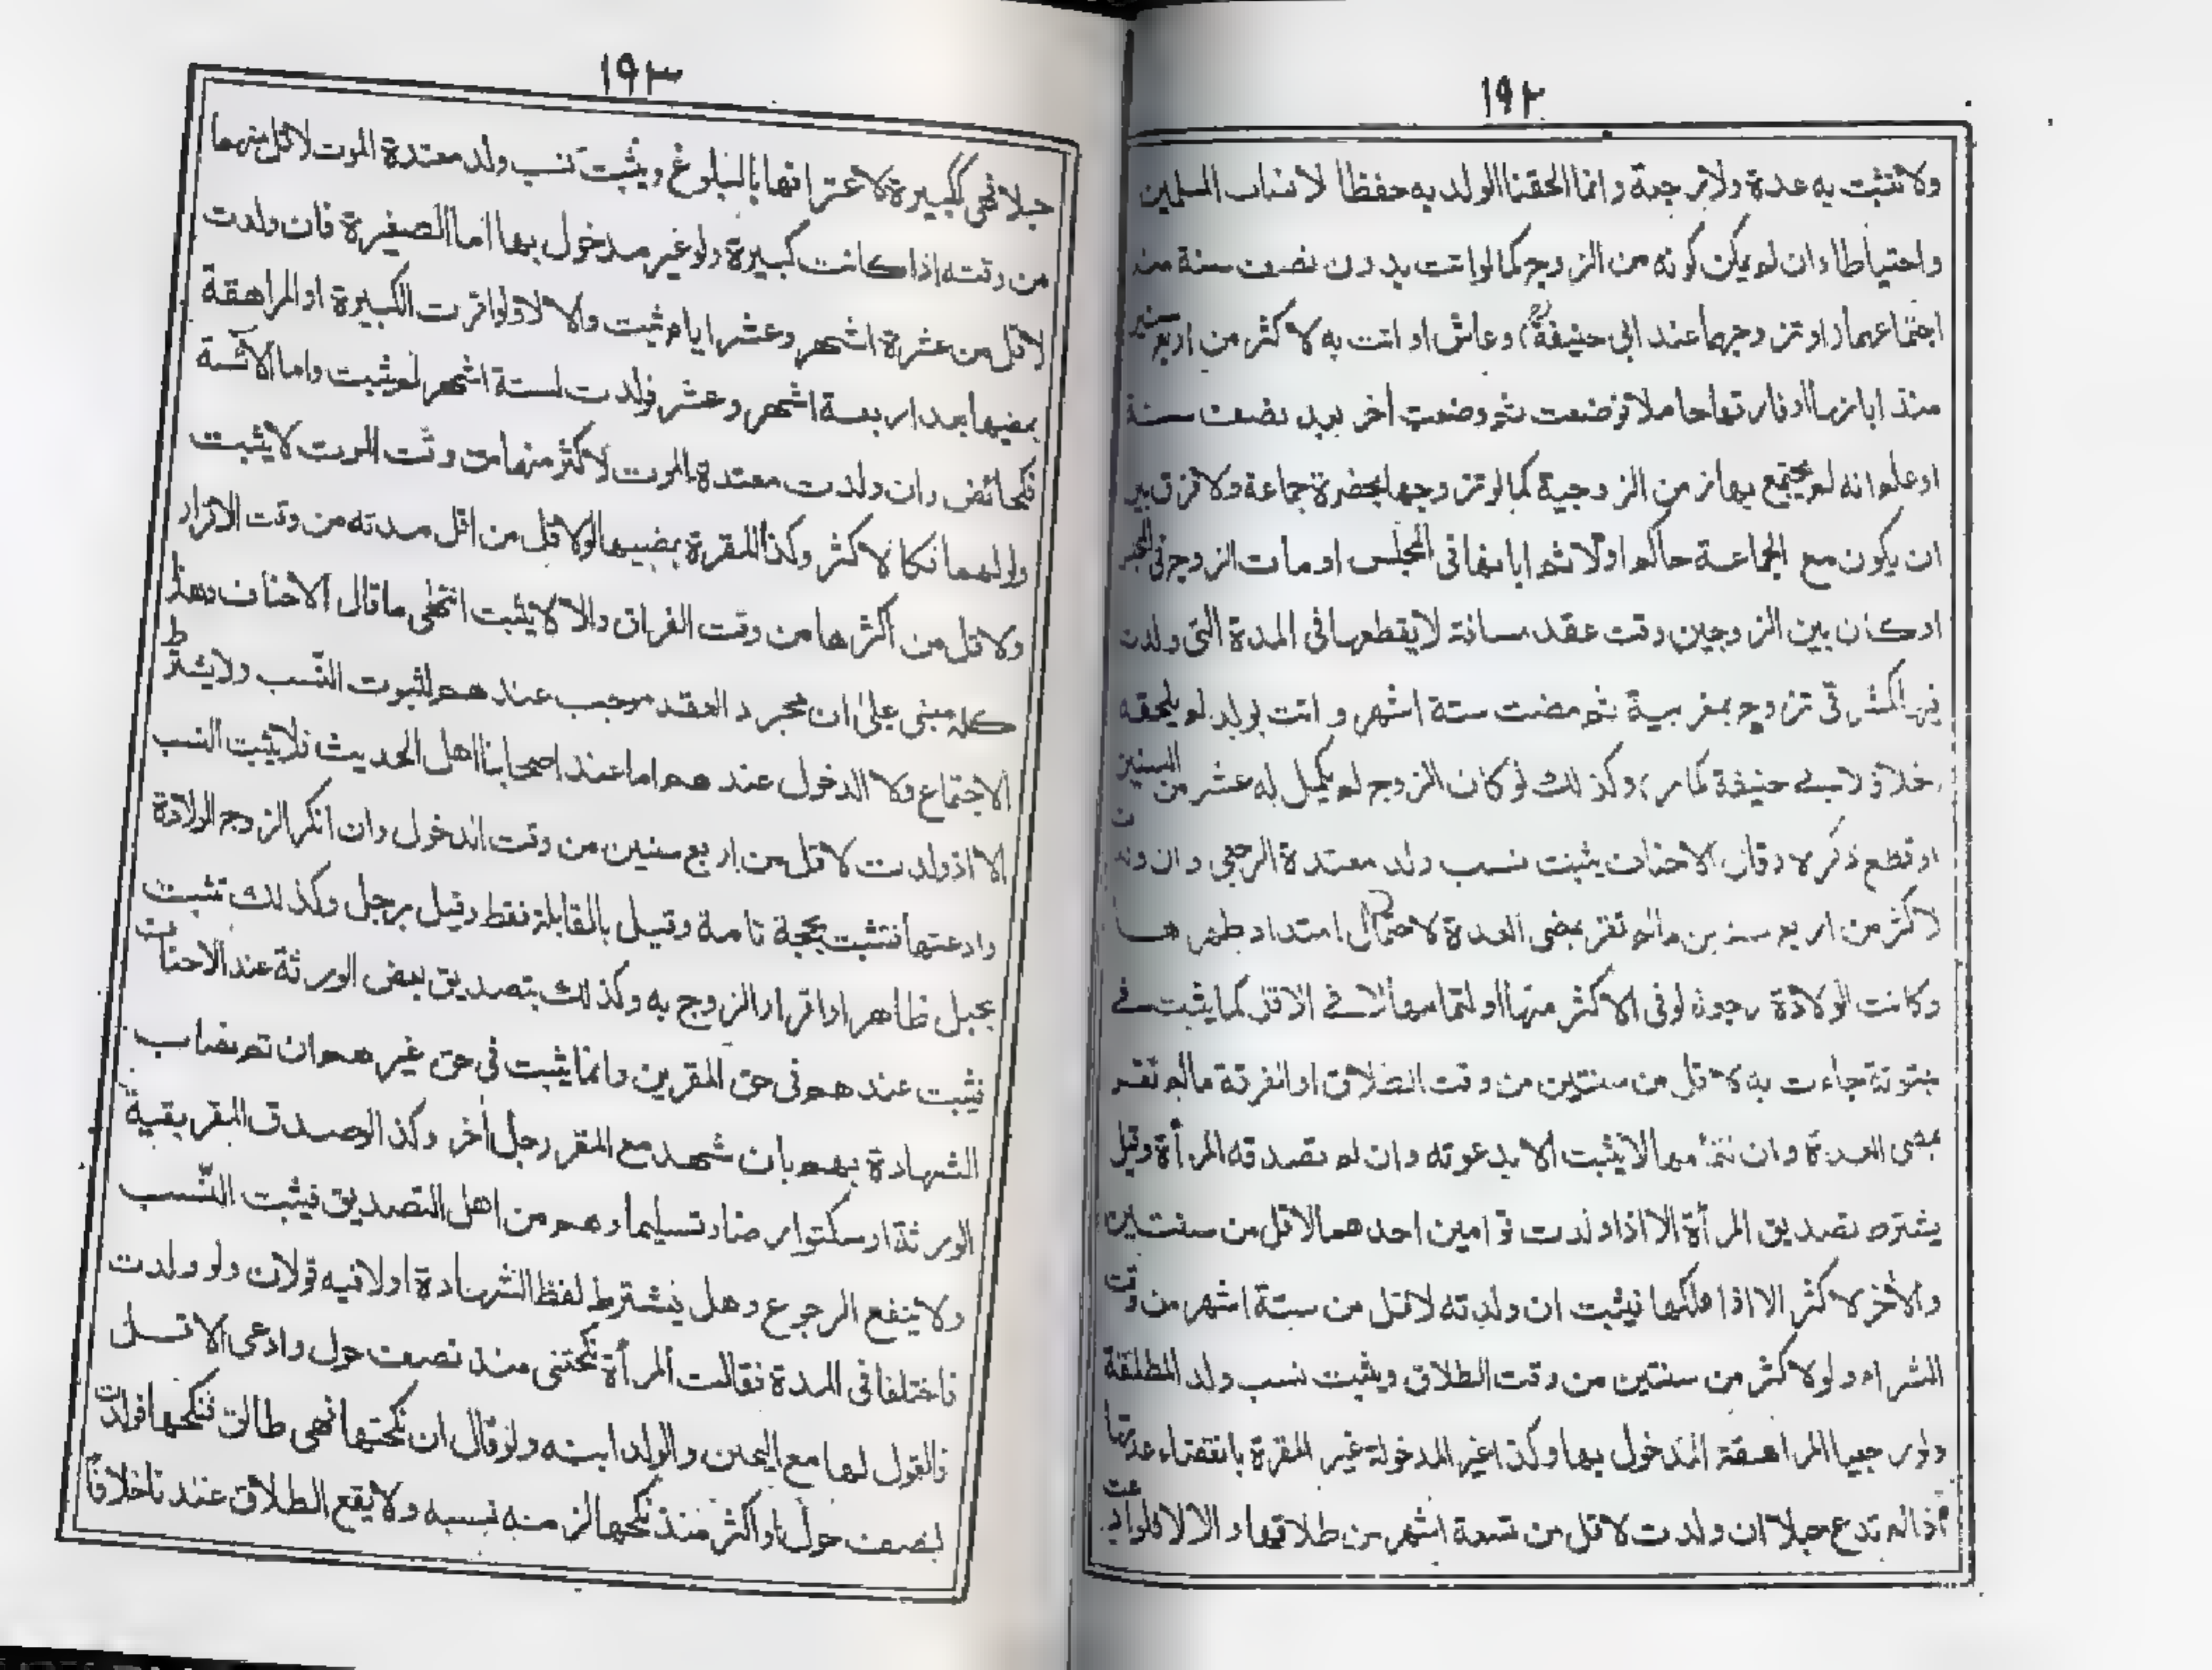 ١٩٢
ولا تثبت به عدة ولا رجعة وانما الحقنا الولد به حفظا لانساب المسلمين
واحتياطا وان لم يكن كونه من الزوج كما لو اتت بدون نصف سنة منذ
اجتماعهما (او تزوجها عند ابي حنيفةؒ) وعاش او اتت به لاكثر من اربع سنين
منذ ابانها او فارقها حاملا فوضعت ثم وضعت اخر بعد نصف سنة
او علم انه لم يجتمع بها زمن الزوجية كما لو تزوجها بحضرة جماعة ولا فرق بين
ان يكون مع الجماعة حاكم اولا ثم ابانها في المجلس او مات الزوج في المجلس
او كان بين الزوجين وقت عقد مسافة لا يقطعها في المدة التي ولدت
فيها كمشرقي تزوج بمغربية ثم مضت ستة اشهر و اتت بولد لم يلحقه
(خلافا لابي حنيفة كما مر) وكذلك لو كان الزوج لم يكمل له عشر من السنين
او قطع ذكره وقال الاحناف يثبت نسب ولد معتدة الرجعي وان ولدت
لاكثر من اربع سنين مالم تقر بمضى العدة لاحتمال امتداد طهرها
وكانت الولادة رجعة لو في الاكثر منها او لتمامها لا في الاقل كما يثبت في
مبتوتة جاءت به لاقل من سنتين من وقت الطلاق او الفرقة مالم تقر
بمضى العدة وان لتمامها لا يثبت الا بدعوته وان لم تصدقه المرأة وقيل
يشترط تصديق المرأة الا اذا ولدت توامين احدهما لاقل من سنتين
والأخر لاكثر الا اذا ملكها فيثبت ان ولدته لاقل من ستة اشهر من وقت
الشراء ولو لاكثر من سنتين من وقت الطلاق ويثبت نسب ولد المطلقة
ولو رجعيا المراهقة المدخول بها وكذا غير المدخولة غير المقرة بانقضاء عدتها
اذا لم تدع حبلا ان ولدت لاقل من تسعة اشهر من طلاقها والا لا فلو ادعت
١٩٣
حبلا فهي ككبيرة لاعترافها بالبلوغ ويثبت نسب ولد معتدة الموت لاقل منهما
من وقته اذا كانت كبيرة ولو غير مدخول بها اما الصغيرة فان ولدت
لاقل من عشرة اشهر وعشر ايام ثبت والا لا ولو اقرت الكبيرة او المراهقة
بمضيها بعد اربعة اشهر وعشر فولدت لستة اشهر لم يثبت واما الآئسة
فكحائض وان ولدت معتدة الموت لاكثر منهما من وقت الموت لا يثبت
ولو لهما فكالاكثر وكذا المقرة بمضيها لو لاقل من اقل مدته من وقت الاقرار
ولاقل من اكثرها من وقت الفراق والا لا يثبت انتهى ما قال الاحناف وهذا
كله مبني على ان مجرد العقد موجب عندهم لثبوت النسب ولا يشترط
الاجتماع ولا الدخول عندهم اما عند اصحابنا اهل الحديث فلا يثبت النسب
الا اذ ولدت لاقل من اربع سنين من وقت الدخول وان انكر الزوج الولادة
وادعتها فتثبت بحجة تامة وقيل بالقابلة فقط وقيل برجل وكذلك تثبت
بحبل ظاهر او اقرار الزوج به وكذلك بتصديق بعض الورثة عند الاحناف
فيثبت عندهم في حق المقرين وانما يثبت في حق غيرهم ان تم نصاب
الشهادة بهم بان شهد مع المقر رجل أخر وكذا لو صدق المقر بقية
الورثة او سكتوا رضا وتسليما وهم من اهل التصديق فيثبت النسب
ولا ينفع الرجوع وهل يشترط لفظ الشهادة اولا فيه قولان ولو ولدت
فاختلفا في المدة فقالت المرأة نكحتني منذ نصف حول وادعى الاقل
فالقول لها مع اليمين والولد ابنه ولو قال ان نكحتها فهي طالق فنكحها فولدت
لنصف حول او اكثر منذ نكحها لزمنه نسبه ولا يقع الطلاق عندنا خلافا